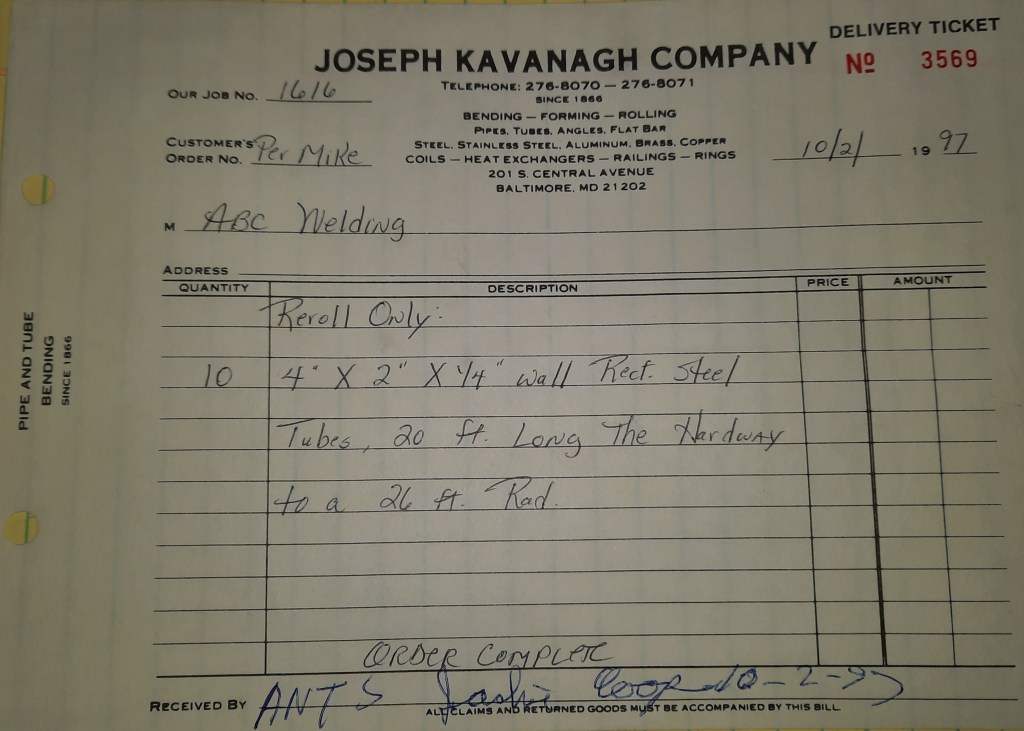 DELIVERY TICKET
JOSEPH KAVANAGH COMPANY
Nº 3569
TELEPHONE: 276-8070 — 276-8071
SINCE 1866
OUR JOB NO. 1616
BENDING — FORMING — ROLLING
PIPES, TUBES, ANGLES, FLAT BAR
STEEL, STAINLESS STEEL, ALUMINUM, BRASS, COPPER
COILS — HEAT EXCHANGERS — RAILINGS — RINGS
201 S. CENTRAL AVENUE
BALTIMORE, MD 21202
CUSTOMER'S
ORDER NO. Per Mike
10/2/ 19 97
M ABC Welding
ADDRESS
QUANTITY DESCRIPTION PRICE AMOUNT
Reroll Only:
10 4" X 2" X 1/4" wall Rect. Steel
Tubes, 20 ft. Long The Hardway
to a 26 ft. Rad.
ORDER COMPLETE
RECEIVED BY ANTS 10-2-97
ALL CLAIMS AND RETURNED GOODS MUST BE ACCOMPANIED BY THIS BILL
PIPE AND TUBE
BENDING
SINCE 1866